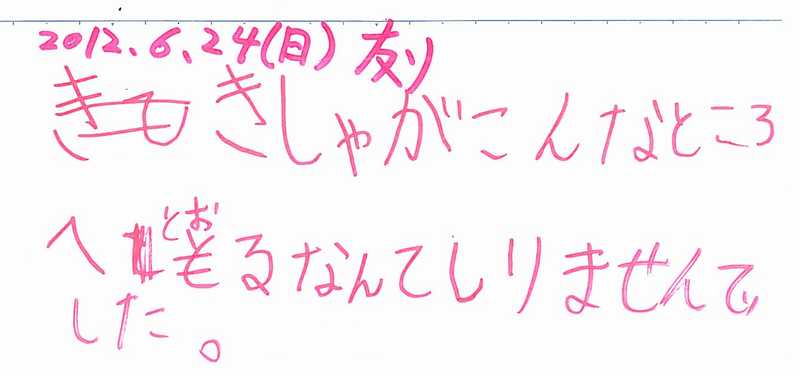 2012.6.24(日) 友り
きしゃがこんなところ
へとおるなんてしりませんで
した。